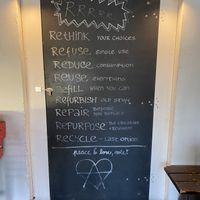 RRRRR
RETHINK YOUR CHOICES
REFUSE SINGLE USE
REDUCE CONSUMPTION
REUSE EVERYTHING
REFILL WHEN YOU CAN
REFURBISH OLD STUFF
REPAIR BEFORE YOU REPLACE
REPURPOSE BE CREATIVE
RECYCLE - LAST OPTION
peace & love,